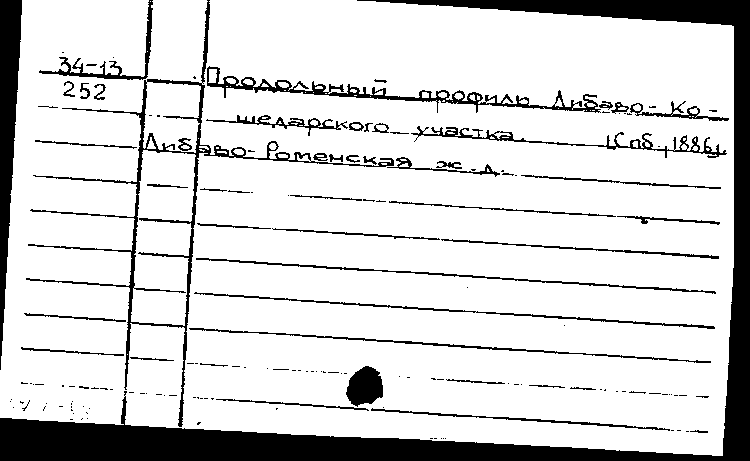 34-13
252
Продольный профиль Либаво-Ко-
шедарского участка. [Спб., 1886].
Либаво-Роменская ж.д.